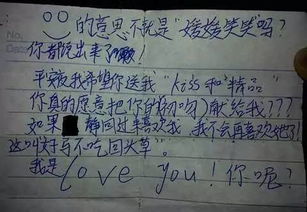 的意思不就是"嘻嘻笑笑"吗?
你都玩出来了!
平安夜我希望你送我"kiss和"精品"
你真的愿意把你的初吻)献给我???
如果 静回过来喜欢我,我不会再喜欢她了!
这叫好马不吃回头草"。
我是love you!你呢?